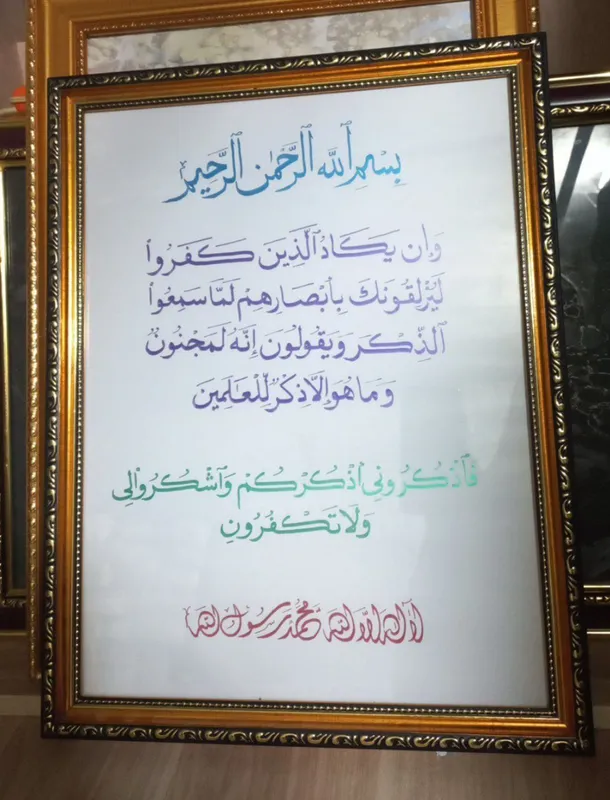 بِسْمِ ٱللَّهِ ٱلرَّحْمَٰنِ ٱلرَّحِيمِ
وَإِن يَكَادُ ٱلَّذِينَ كَفَرُوا۟
لَيُزْلِقُونَكَ بِأَبْصَارِهِمْ لَمَّا سَمِعُوا۟
ٱلذِّكْرَ وَيَقُولُونَ إِنَّهُ لَمَجْنُونٌ
وَمَا هُوَ إِلَّا ذِكْرٌ لِّلْعَالَمِينَ
فَٱذْكُرُونِي أَذْكُرْكُمْ وَٱشْكُرُوا۟ لِي
وَلَا تَكْفُرُونِ
لا إله إلا الله محمد رسول الله